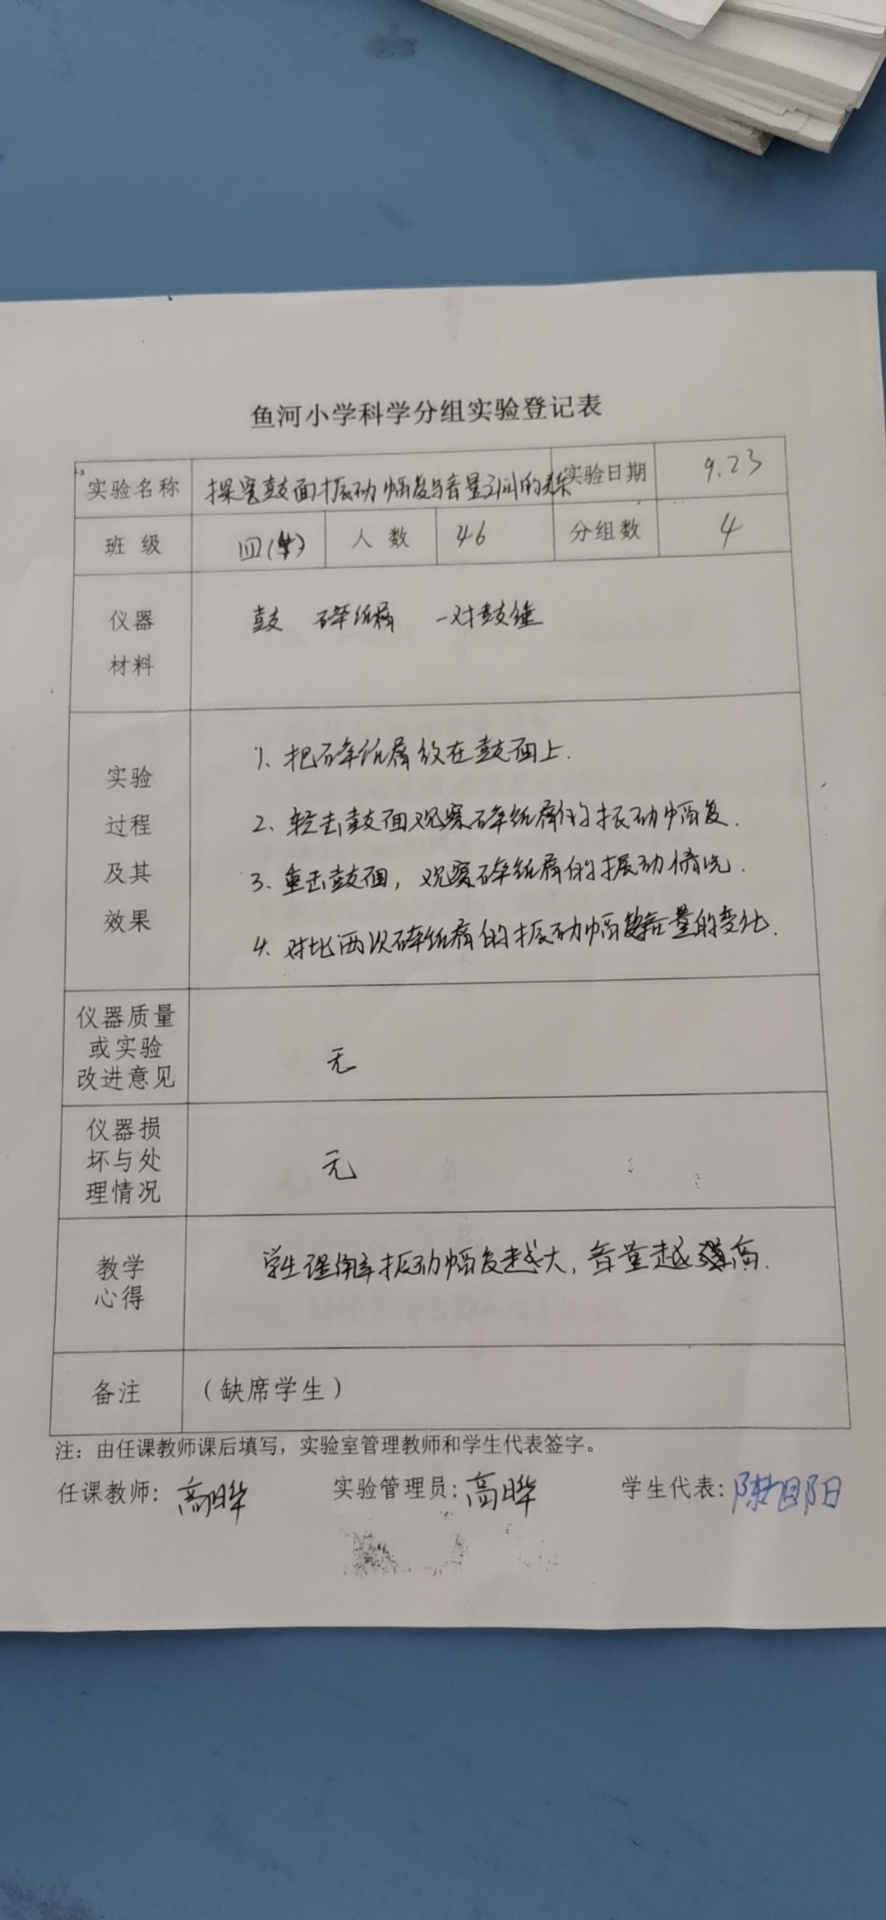 鱼河小学科学分组实验登记表
实验名称 探究鼓面振动幅度与音量之间的关系 实验日期 9.23
班 级 四( ) 人 数 46 分组数 4
仪器
材料
鼓 碎纸屑 一对鼓锤
实验
过程
及其
效果
1. 把碎纸屑放在鼓面上.
2. 轻击鼓面观察碎纸屑的振动幅度.
3. 重击鼓面, 观察碎纸屑的振动情况.
4. 对比两次碎纸屑的振动幅度 音量的变化.
仪器质量
或实验
改进意见
无
仪器损
坏与处
理情况
无
教学
心得
学生理解 振动幅度越大, 音量越 高.
备注 (缺席学生)
注: 由任课教师课后填写, 实验室管理教师和学生代表签字。
任课教师: 高晔 实验管理员: 高晔 学生代表: 陈旭阳